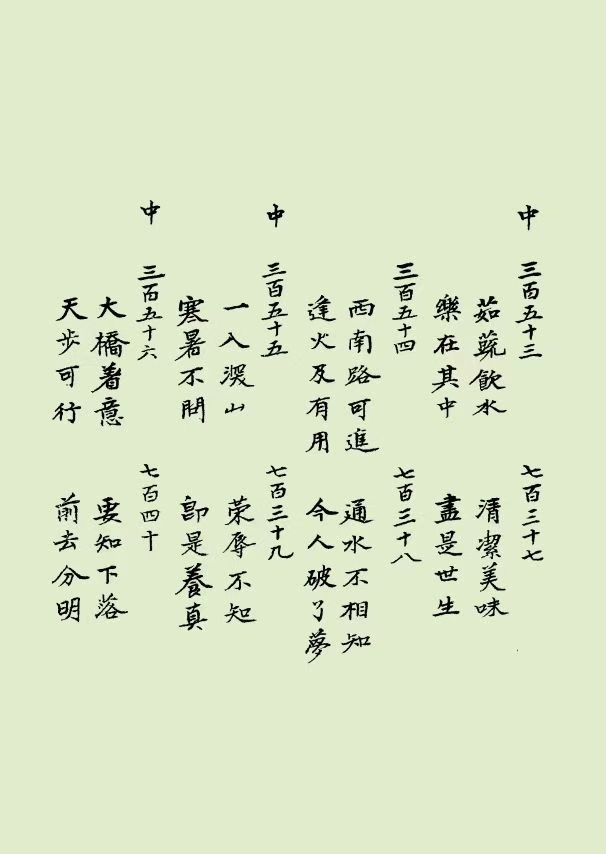 中 三百五十三
茹蔬飲水
樂在其中
七百三十七
清潔美味
盡是世生
三百五十四
西南路可進
逢火及有用
七百三十八
通水不相知
今人破了夢
中 三百五十五
一入深山
寒暑不問
七百三十九
荣辱不知
即是養真
中 三百五十六
大橋着意
天步可行
七百四十
要知下落
前去分明